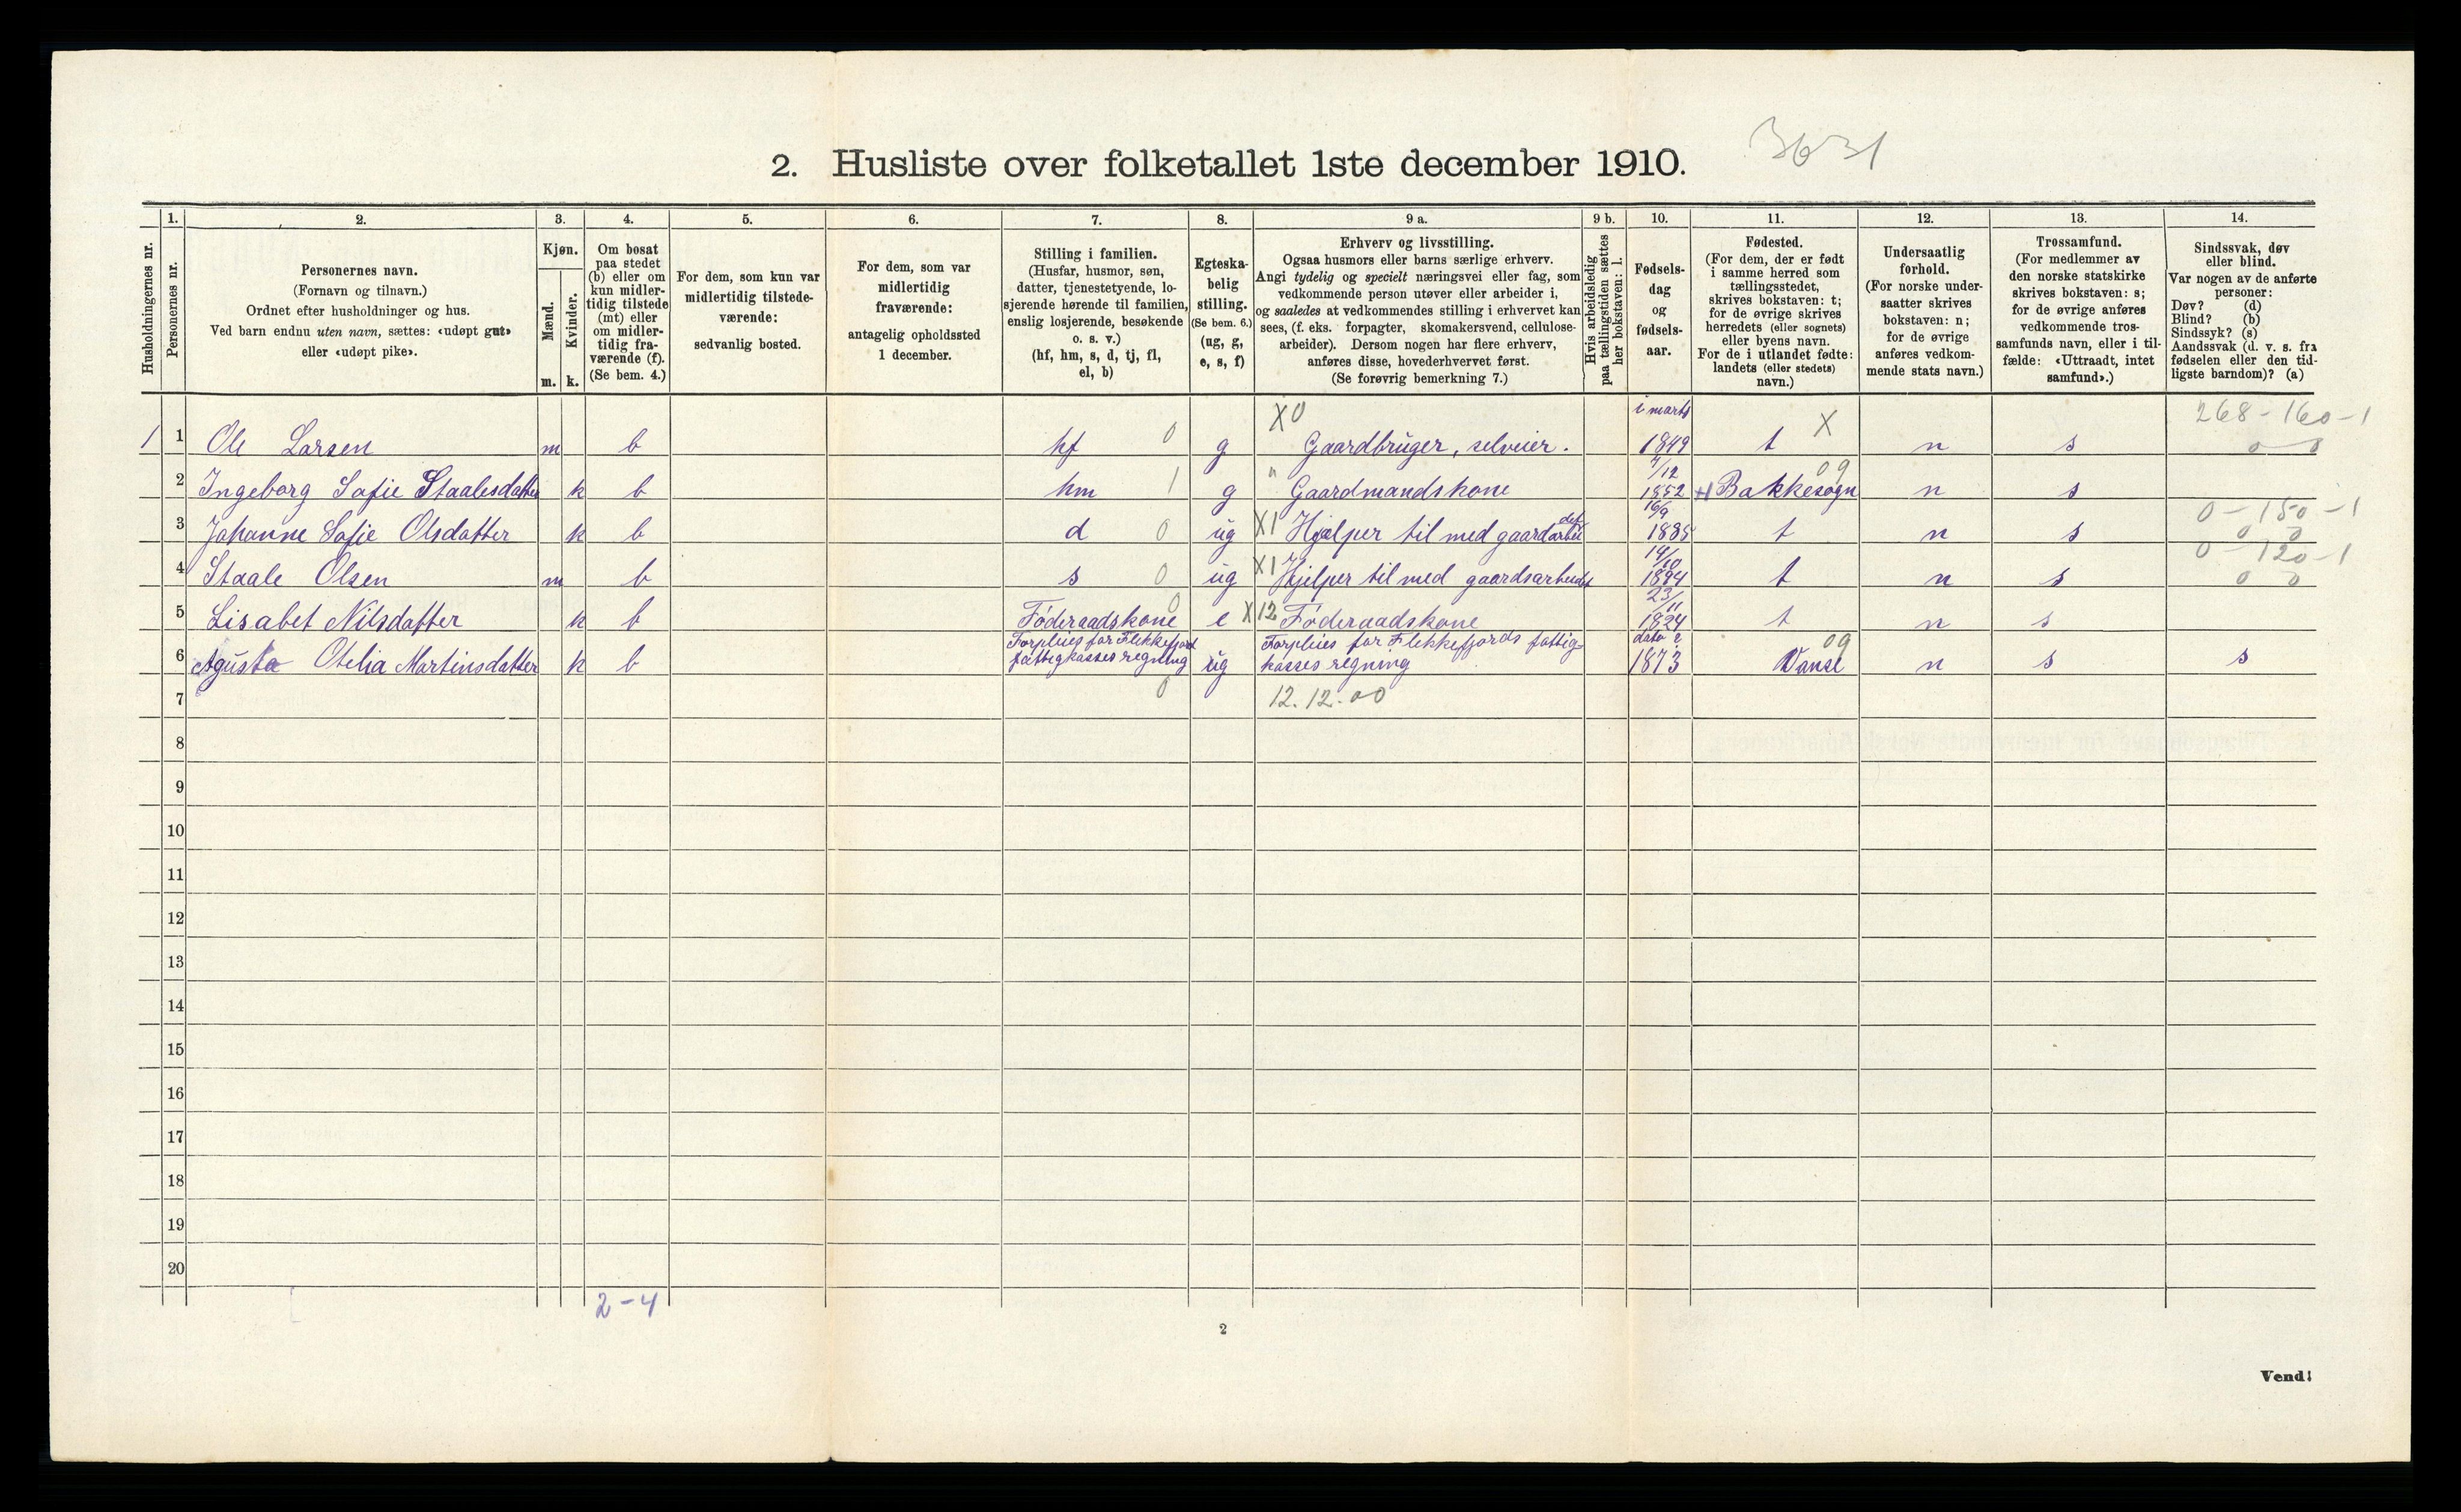 2. Husliste over folketallet 1ste december 1910.
3631
1. 2. 3. 4. 5. 6. 7. 8. 9 a. 9 b. 10. 11. 12. 13. 14.
Husholdningernes nr.
Personernes nr.
Personernes navn.
(Fornavn og tilnavn.)
Ordnet efter husholdninger og hus.
Ved barn endnu uten navn, sættes: «udøpt gut»
eller «udøpt pike».
Kjøn.
Mænd.
Kvinder.
m. k.
Om bosat
paa stedet
(b) eller om
kun midler-
tidig tilstede
(mt) eller
om midler-
tidig fra-
værende (f).
(Se bem. 4.)
For dem, som kun var
midlertidig tilstede-
værende:
sedvanlig bosted.
For dem, som var
midlertidig
fraværende:
antagelig opholdssted
1 december.
Stilling i familien.
(Husfar, husmor, søn,
datter, tjenestetyende, lo-
sjerende hørende til familien,
enslig losjerende, besøkende
o. s. v.)
(hf, hm, s, d, tj, fl,
el, b)
Egteska-
belig
stilling.
(Se bem. 6.)
(ug, g,
e, s, f)
Erhverv og livsstilling.
Ogsaa husmors eller barns særlige erhverv.
Angi tydelig og specielt næringsvei eller fag, som
vedkommende person utøver eller arbeider i,
og saaledes at vedkommendes stilling i erhvervet kan
sees, (f. eks. forpagter, skomakersvend, cellulose-
arbeider). Dersom nogen har flere erhverv,
anføres disse, hovederhvervet først.
(Se forøvrig bemerkning 7.)
Hvis arbeidsledig
paa tællingstiden sættes
her bokstaven: l.
Fødsels-
dag
og
fødsels-
aar.
Fødested.
(For dem, der er født
i samme herred som
tællingsstedet,
skrives bokstaven: t;
for de øvrige skrives
herredets (eller sognets)
eller byens navn.
For de i utlandet fødte:
landets (eller stedets)
navn.)
Undersaatlig
forhold.
(For norske under-
saatter skrives
bokstaven: n;
for de øvrige
anføres vedkom-
mende stats navn.)
Trossamfund.
(For medlemmer av
den norske statskirke
skrives bokstaven: s;
for de øvrige anføres
vedkommende tros-
samfunds navn, eller i til-
fælde: «Uttraadt, intet
samfund».)
Sindssvak, døv
eller blind.
Var nogen av de anførte
personer:
Døv? (d)
Blind? (b)
Sindssyk? (s)
Aandssvak (d. v. s. fra
fødselen eller den tid-
ligste barndom)? (a)
X0 i marts X 268-160-1
1 1 Ole Larsen m b hf 0 g Gaardbruger, selveier. 1849 t n s 0 0
" 7/12 09
2 Ingeborg Sofie Staalesdatter k b hm 1 g Gaardmandskone 1852 Bakkesogn n s
16/9 0-150-1
3 Johanne Sofie Olsdatter k b d 0 ug X1 Hjælper til med gaardarbeidet 1885 t n s 0 0
14/10 0-120-1
4 Staale Olsen m b s 0 ug X1 Hjelper til med gaardsarbeidet 1894 t n s 0 0
0 23/11
5 Lisabet Nilsdatter k b Føderaadskone e X12 Føderaadskone 1824 t n s
Forpleies for Flekkefjord Forpleies for Flekkefjords fattig- 09
6 Agusta Otelia Martinsdatter k b fattigkasses regning ug kasses regning 1873 Vanse n s s
7 0 12.12.00
8
9
10
11
12
13
14
15
16
17
18
19
20
2-4
2
Vend!